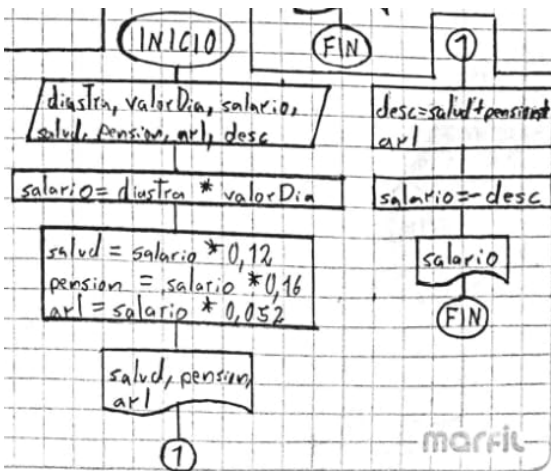 INICIO
diasTra, valorDia, salario,
salud, pension, arl, desc
salario= diasTra * valorDia
salud = salario *0,12
pension = salario *0,16
arl = salario * 0,052
salud, pension,
arl
1
FIN
1
desc=salud+pension+
arl
salario=-desc
salario
FIN
marfil